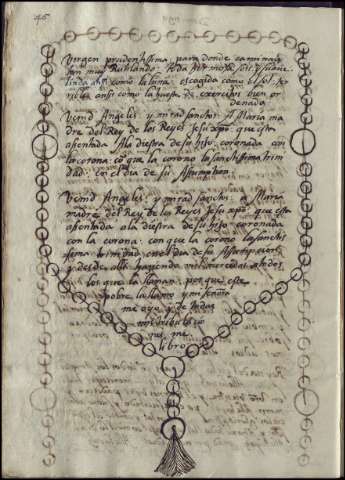 46
Virgen prudentissima, para donde caminais
tan muy Rutilando. toda hermosa, sois y suave
linda ansi como la luna, escogida como el sol, te-
rrible ansi como la hueste de exercitos bien or
denada
Venid Angeles y mirad sanctos. A Maria ma
dre del Rey de los Reyes Jesu xpo, que esta
asentada A la diestra de su hijo, coronada con
la corona, cõ que la corono la sanctissima trini
dad, en el dia de su Assumption.
Venid Angeles, y mirad sanctos, a Maria
madre del Rey de los Reyes Jesu xpo, que esta
asentada a la diestra de su hijo coronada
con la corona, con que la corono la sanctis
sima trinidad, en el dia de su Assumpcion,
y desde alli, haziendo mil mercedes a todos
los que la llaman, porque este
pobre, la llamo, y mi señora
me oyo, y de todas
mis tribulacio
nes, me
libro